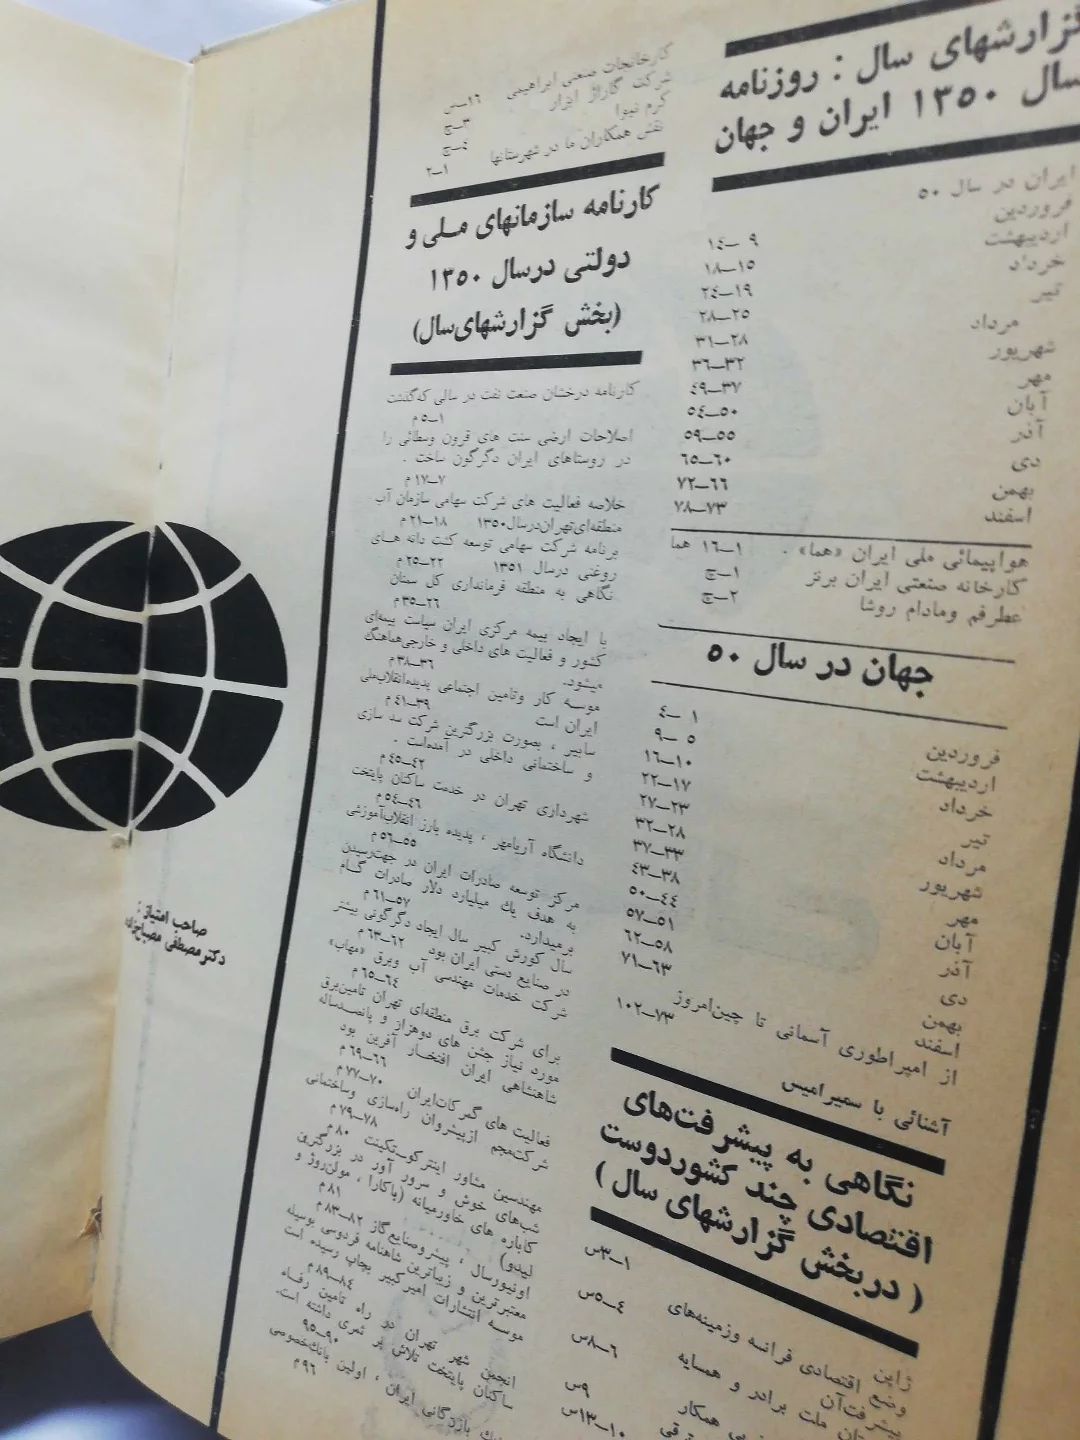 گزارشهای سال : روزنامه
سال ۱۳۵۰ ایران و جهان
ایران در سال ۵۰
فروردین ۹ـ۱۴
اردیبهشت ۱۵ـ۱۸
خرداد ۱۹ـ۲۴
تیر ۲۵ـ۲۸
مرداد ۲۸ـ۳۱
شهریور ۳۲ـ۳۶
مهر ۳۷ـ۴۹
آبان ۵۰ـ۵۴
آذر ۵۵ـ۵۹
دی ۶۰ـ۶۵
بهمن ۶۶ـ۷۲
اسفند ۷۳ـ۷۸
هواپیمائی ملی ایران «هما» . ۱ـ۱۶ هما
کارخانه صنعتی ایران برنز ۱ـچ
عطرقم ومادام روشا ۲ـچ
جهان در سال ۵۰
فروردین ۱ـ۴
اردیبهشت ۵ـ۹
خرداد ۱۰ـ۱۶
تیر ۱۷ـ۲۲
مرداد ۲۳ـ۲۷
شهریور ۲۸ـ۳۲
مهر ۳۳ـ۳۷
آبان ۳۸ـ۴۳
آذر ۴۴ـ۵۰
دی ۵۱ـ۵۷
بهمن ۵۸ـ۶۲
اسفند ۶۳ـ۷۱
از امپراطوری آسمانی تا چین‌امروز
۷۳ـ۱۰۲
آشنائی با سمیرامیس
نگاهی به پیشرفت‌های
اقتصادی چند کشوردوست
( دربخش گزارشهای سال )
ژاپن ۱ـ۳س
وضع اقتصادی فرانسه وزمینه‌های
پیشرفت‌آن ۴ـ۵س
ملت برادر و همسایه ۶ـ۸س
همکار ۹س
۱۰ـ۱۳س
کارخانجات صنعتی ابراهیمی ۱۶ـس
شرکت گاراژ ابزار ۳ـچ
کرم نیوا ۴ـچ
نقش همکاران ما در شهرستانها ۱ـ۲
کارنامه سازمانهای ملی و
دولتی درسال ۱۳۵۰
(بخش گزارشهای‌سال)
کارنامه درخشان صنعت نفت در سالی که‌گذشت
۱ـ۵م
اصلاحات ارضی سنت های قرون وسطائی را
در روستاهای ایران دگرگون ساخت .
۷ـ۱۷م
خلاصه فعالیت های شرکت سهامی سازمان آب
منطقه‌ای‌تهران‌درسال۱۳۵۰ ۱۸ـ۲۱م
برنامه شرکت سهامی توسعه کشت دانه هــای
روغنی درسال ۱۳۵۱ ۲۲ـ۲۵م
نگاهی به منطقه فرمانداری کل سمنان
۲۶ـ۳۵م
با ایجاد بیمه مرکزی ایران سیاست بیمه‌ای
کشور و فعالیت های داخلی و خارجی‌هماهنگ
میشود. ۳۶ـ۳۸م
موسسه کار وتامین اجتماعی پدیده‌انقلاب‌ملی
ایران است ۳۹ـ۴۱م
سابیر ، بصورت بزرگترین شرکت سد سازی
و ساختمانی داخلی در آمده‌است .
۴۲ـ۴۵م
شهرداری تهران در خدمت ساکنان پایتخت
۴۶ـ۵۴م
دانشگاه آریامهر ، پدیده بارز انقلاب‌آموزشی
۵۵ـ۵۶م
مرکز توسعه صادرات ایران در جهت‌رسیدن
به هدف یك میلیارد دلار صادرات گــام
برمیدارد. ۵۷ـ۶۱م
سال کورش کبیر سال ایجاد دگرگونی بیشتر
در صنایع دستی ایران بود ۶۲ـ۶۳م
شرکت خدمات مهندسی آب وبرق «مهاب»
۶۴ـ۶۵م
برای شرکت برق منطقه‌ای تهران تامین‌برق
مورد نیاز جشن های دوهزار و پانصــدساله
شاهنشاهی ایران افتخــار آفرین بود
۶۶ـ۶۹م
فعالیت های گمرکات‌ایران ۷۰ـ۷۷م
شرکت‌مجم ازپیشروان راه‌سازی وساختمانی
۷۸ـ۷۹م
مهندسین مشاور اینترکو-تکینت ۸۰م
شب‌های خوش و سرور آور در بزرگترین
کاباره های خاورمیانه (باکارا ، مولن‌روژ و
لیدو) ۸۱م
اونیورسال ، پیشروصنایع‌گاز ۸۲ـ۸۳م
معتبرترین و زیباترین شاهنامه فردوسی بوسیله
موسسه انتشارات امیرکبیر بچاپ رسیده است
۸۴ـ۸۹م
انجمن شهر تهران در راه تامین رفــاه
ساکنان پایتخت تلاش پر ثمری داشته است.
۹۰ـ۹۵
بازرگانی ایران ، اولین بانك‌خصوصی
۹۶م
صاحب امتیاز :
دکترمصطفی مصباح‌زاده